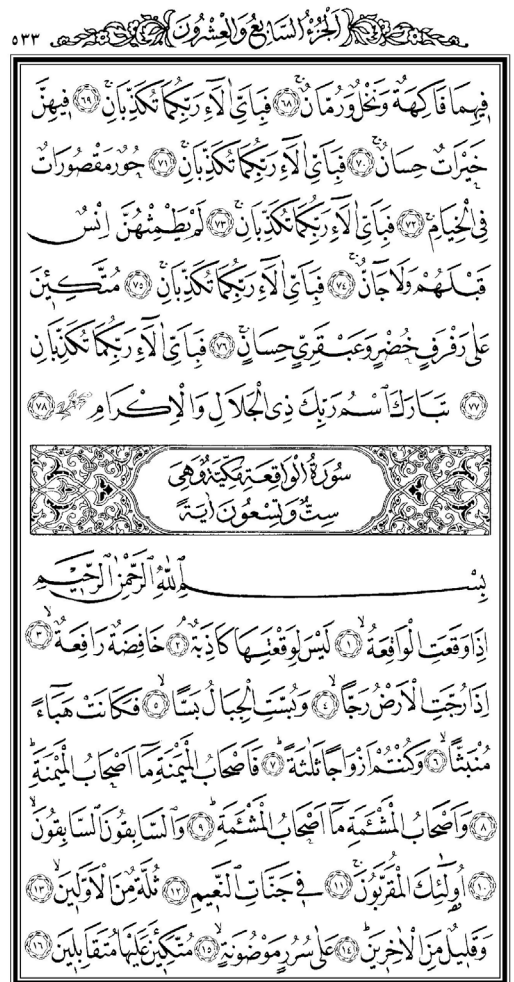 الجزء السابع والعشرون ٥٣٣
فِيهِمَا فَاكِهَةٌ وَنَخْلٌ وَرُمَّانٌۚ ﴿٦٨﴾ فَبِاَىِّ اٰلَٓاءِ رَبِّكُمَا تُكَذِّبَانِۚ ﴿٦٩﴾ فِيهِنَّ
خَيْرَاتٌ حِسَانٌۚ ﴿٧٠﴾ فَبِاَىِّ اٰلَٓاءِ رَبِّكُمَا تُكَذِّبَانِۚ ﴿٧١﴾ حُورٌ مَقْصُورَاتٌ
فِى الْخِيَامِۚ ﴿٧٢﴾ فَبِاَىِّ اٰلَٓاءِ رَبِّكُمَا تُكَذِّبَانِۚ ﴿٧٣﴾ لَمْ يَطْمِثْهُنَّ اِنْسٌ
قَبْلَهُمْ وَلَا جَٓانٌّۚ ﴿٧٤﴾ فَبِاَىِّ اٰلَٓاءِ رَبِّكُمَا تُكَذِّبَانِۚ ﴿٧٥﴾ مُتَّكِـِٔينَ
عَلٰى رَفْرَفٍ خُضْرٍ وَعَبْقَرِىٍّ حِسَانٍۚ ﴿٧٦﴾ فَبِاَىِّ اٰلَٓاءِ رَبِّكُمَا تُكَذِّبَانِ
﴿٧٧﴾ تَبَارَكَ اسْمُ رَبِّكَ ذِى الْجَلَالِ وَالْاِكْرَامِ ﴿٧٨﴾
سُورَةُ الْوَاقِعَةِ مَكِّيَّةٌ وَهِىَ
سِتٌّ وَتِسْعُونَ اٰيَةً
بِسْمِ اللّٰهِ الرَّحْمٰنِ الرَّحِيمِ
اِذَا وَقَعَتِ الْوَاقِعَةُۙ ﴿١﴾ لَيْسَ لِوَقْعَتِهَا كَاذِبَةٌۢ ﴿٢﴾ خَافِضَةٌ رَافِعَةٌۙ ﴿٣﴾
اِذَا رُجَّتِ الْاَرْضُ رَجًّاۙ ﴿٤﴾ وَبُسَّتِ الْجِبَالُ بَسًّاۙ ﴿٥﴾ فَكَانَتْ هَبَٓاءً
مُنْبَثًّاۙ ﴿٦﴾ وَكُنْتُمْ اَزْوَاجًا ثَلٰثَةًۜ ﴿٧﴾ فَاَصْحَابُ الْمَيْمَنَةِ مَٓا اَصْحَابُ الْمَيْمَنَةِۜ
﴿٨﴾ وَاَصْحَابُ الْمَشْـَٔمَةِ مَٓا اَصْحَابُ الْمَشْـَٔمَةِۜ ﴿٩﴾ وَالسَّابِقُونَ السَّابِقُونَۙ
﴿١٠﴾ اُو۬لٰٓئِكَ الْمُقَرَّبُونَۚ ﴿١١﴾ فِى جَنَّاتِ النَّعِيمِ ﴿١٢﴾ ثُلَّةٌ مِنَ الْاَوَّلِينَۙ ﴿١٣﴾
وَقَلِيلٌ مِنَ الْاٰخِرِينَۜ ﴿١٤﴾ عَلٰى سُرُرٍ مَوْضُونَةٍۙ ﴿١٥﴾ مُتَّكِـِٔينَ عَلَيْهَا مُتَقَابِلِينَ ﴿١٦﴾